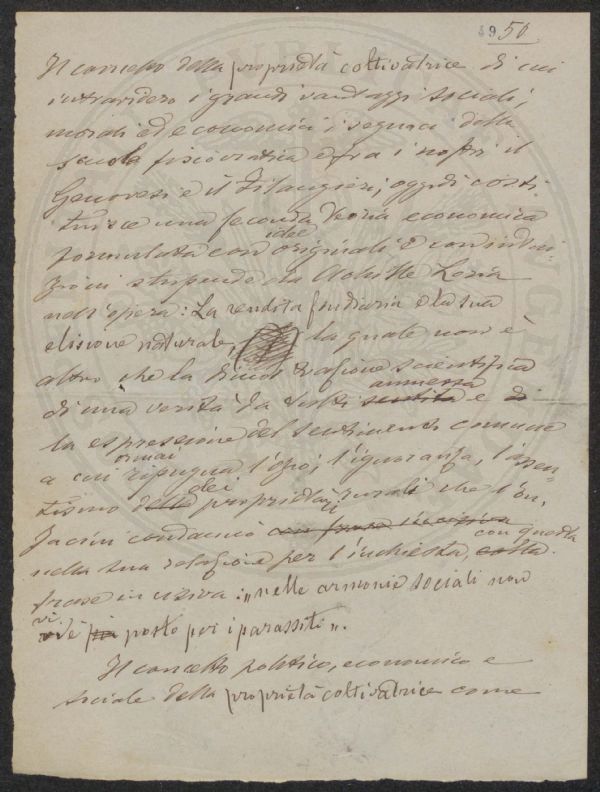 49 50
Il concetto della proprietà coltivatrice di cui
intravidero i grandi vantaggi sociali,
morali ed economici i seguaci della
scuola fisiocratica e fra i nostri il
Genovesi e il Filangieri, oggidì costi
tuisce una feconda teoria economica
formulata con originali idee e con intui-
zioni stupende da Achille Loria
nell'opera: La rendita fondiaria e la sua
elisione naturale, la quale non è
altro che la dimostrazione scientifica
di una verità da tutti sentita ammessa e di
la espressione del sentimento comune
a cui ormai ripugna l'ozio, l'ignoranza, l'assen-
tismo delle dei proprietari rurali che l'on.
Jacini condannò con frase incisiva
nella sua relazione per l'inchiesta, colla con questa
frase incisiva: „nelle armonie sociali non
vi è posto per i parassiti".
Il concetto politico, economico e
sociale della proprietà coltivatrice come